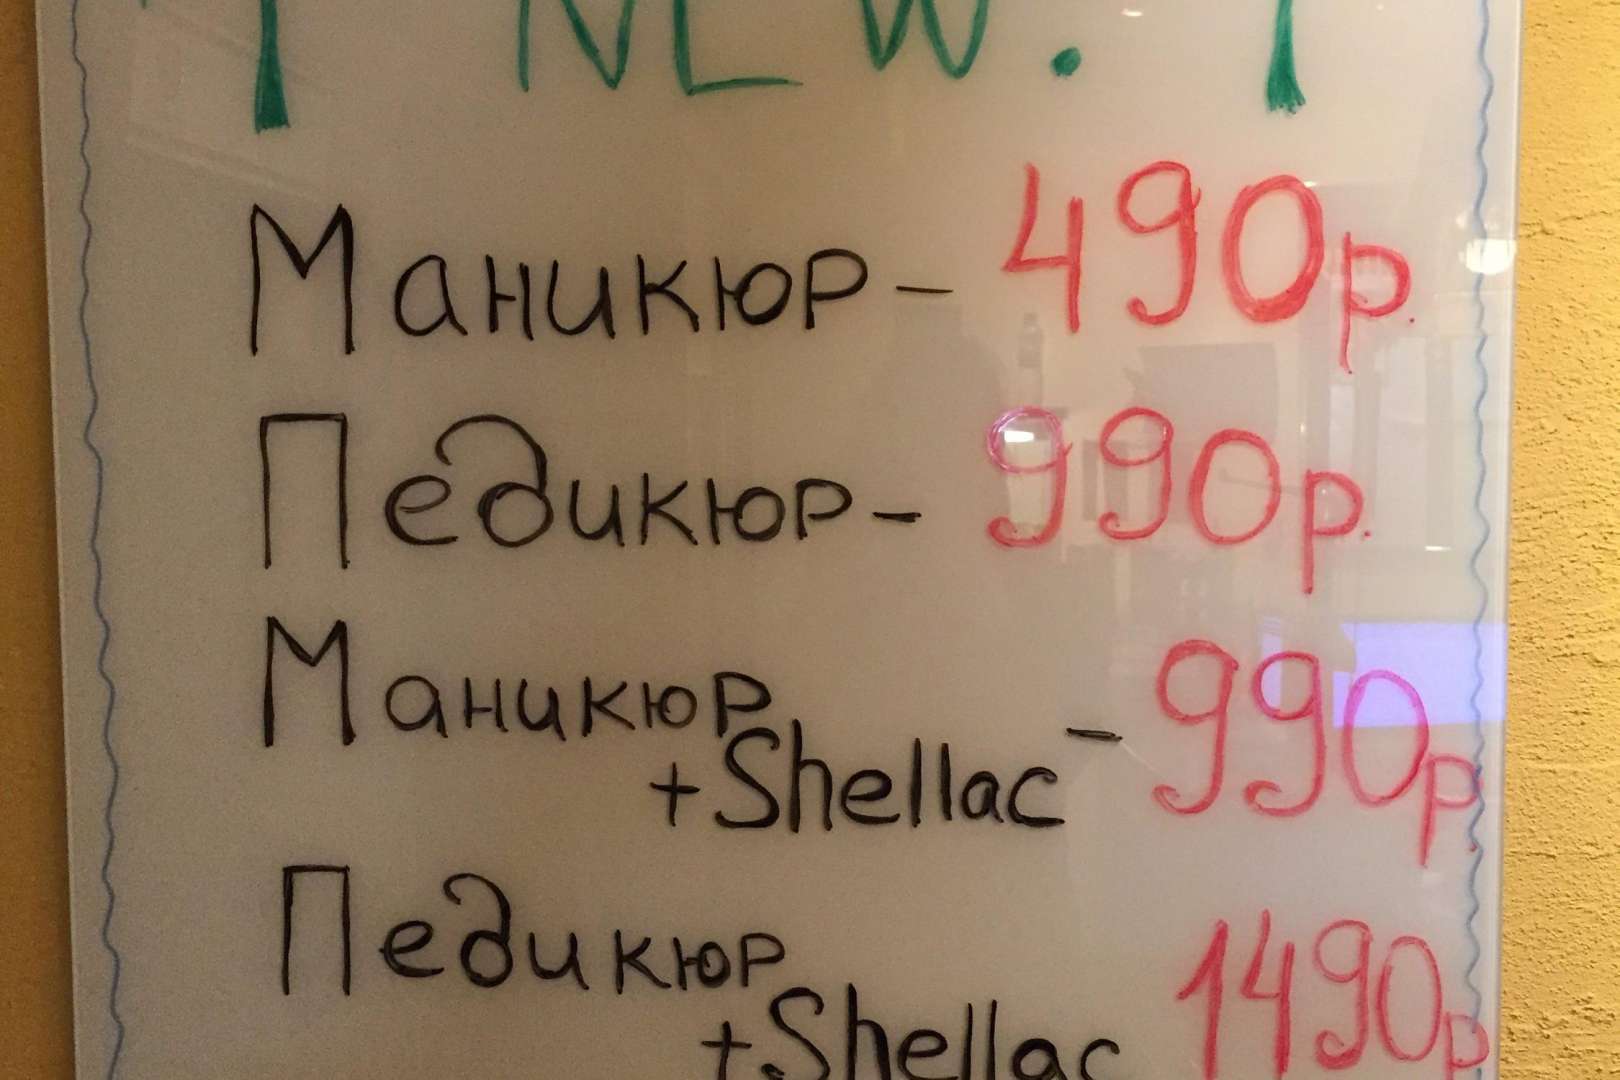 ! NEW. !
Маникюр - 490р.
Педикюр - 990р.
Маникюр
+Shellac - 990р.
Педикюр
+Shellac 1490р